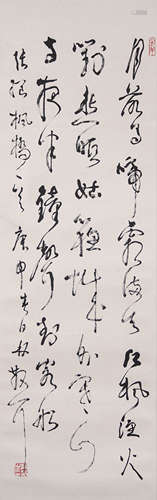 月落烏啼霜滿天江楓漁火
對愁眠姑蘇城外寒山
寺夜半鐘聲到客船
張繼楓橋一首庚申春日林散耳